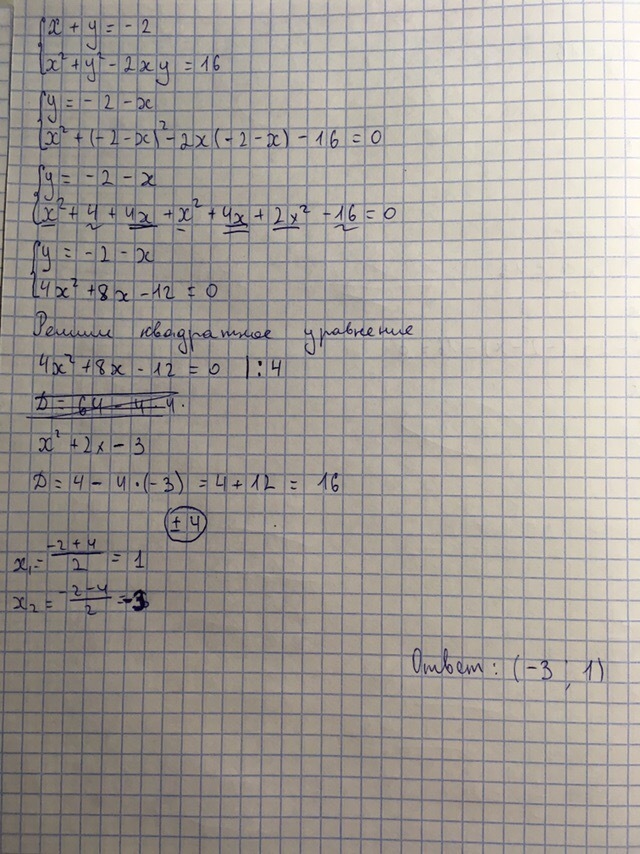 {x + y = -2
{x² + y² - 2xy = 16
{y = -2 - x
{x² + (-2 - x)² - 2x(-2 - x) - 16 = 0
{y = -2 - x
{x² + 4 + 4x + x² + 4x + 2x² - 16 = 0
{y = -2 - x
{4x² + 8x - 12 = 0
Решим квадратное уравнение
4x² + 8x - 12 = 0 | : 4
D = 64 - 4 · 4 ·
x² + 2x - 3
D = 4 - 4 · (-3) = 4 + 12 = 16
± 4
x₁ = (-2 + 4)/2 = 1
x₂ = (-2 - 4)/2 = -3
Ответ: (-3 ; 1)